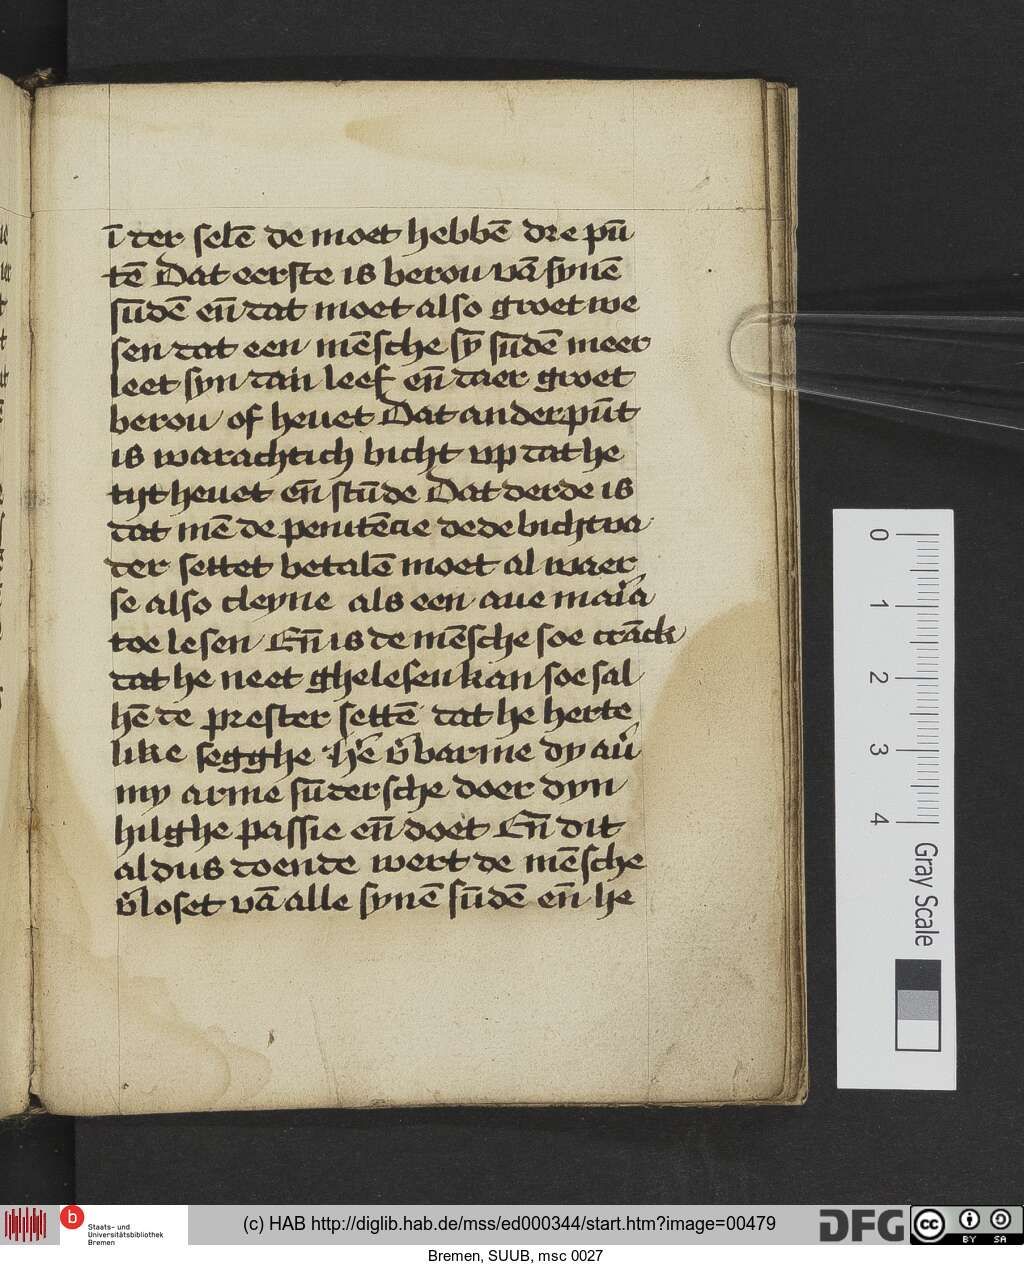 ī der selē de moet hebbē dre pū
tē Dat eerste is berou vā synē
sūdē eñ dat moet also groet we
sen dat een mēsche sȳ sūdē meer
leet syn dan leef eñ daer groet
berou of heuet Dat ander pūt
is warachtich bicht vp dat he
tijt heuet eñ stūde Dat derde is
dat mē de penitēcie de de bichtva
der settet betalē moet al waer
se also cleyne als een aue maria
toe lesen Eñ is de mēsche soe cranck
dat he neet ghelesen kan soe sal
hē de prester settē dat he herte
like segghe h'e v'barme dy au'
my arme sūdersche doer dyn
hilghe passie eñ doet Eñ dit
aldus doende wert de mēsche
v'loset vā alle synē sūdē eñ he
0 1 2 3 4
Gray Scale
b
Staats- und
Universitätsbibliothek
Bremen
(c) HAB http://diglib.hab.de/mss/ed000344/start.htm?image=00479
DFG
cc BY SA
Bremen, SUUB, msc 0027